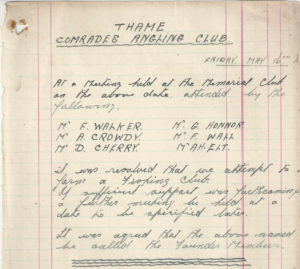 THAME
COMRADES ANGLING CLUB
FRIDAY MAY 16TH
At a Meeting held at the Memorial Club
on the above date attended by the
following.
Mr F. WALKER. Mr G. HONNOR
Mr A. CROWDY. Mr F. WALL
Mr D. CHERRY. Mr AH. ELT.
it was resolved that we attempt to
form a Fishing Club.
If sufficient support was forthcoming
a further meeting be held at a
date to be specified later.
It was agreed that the above named
be called the Founder Members.